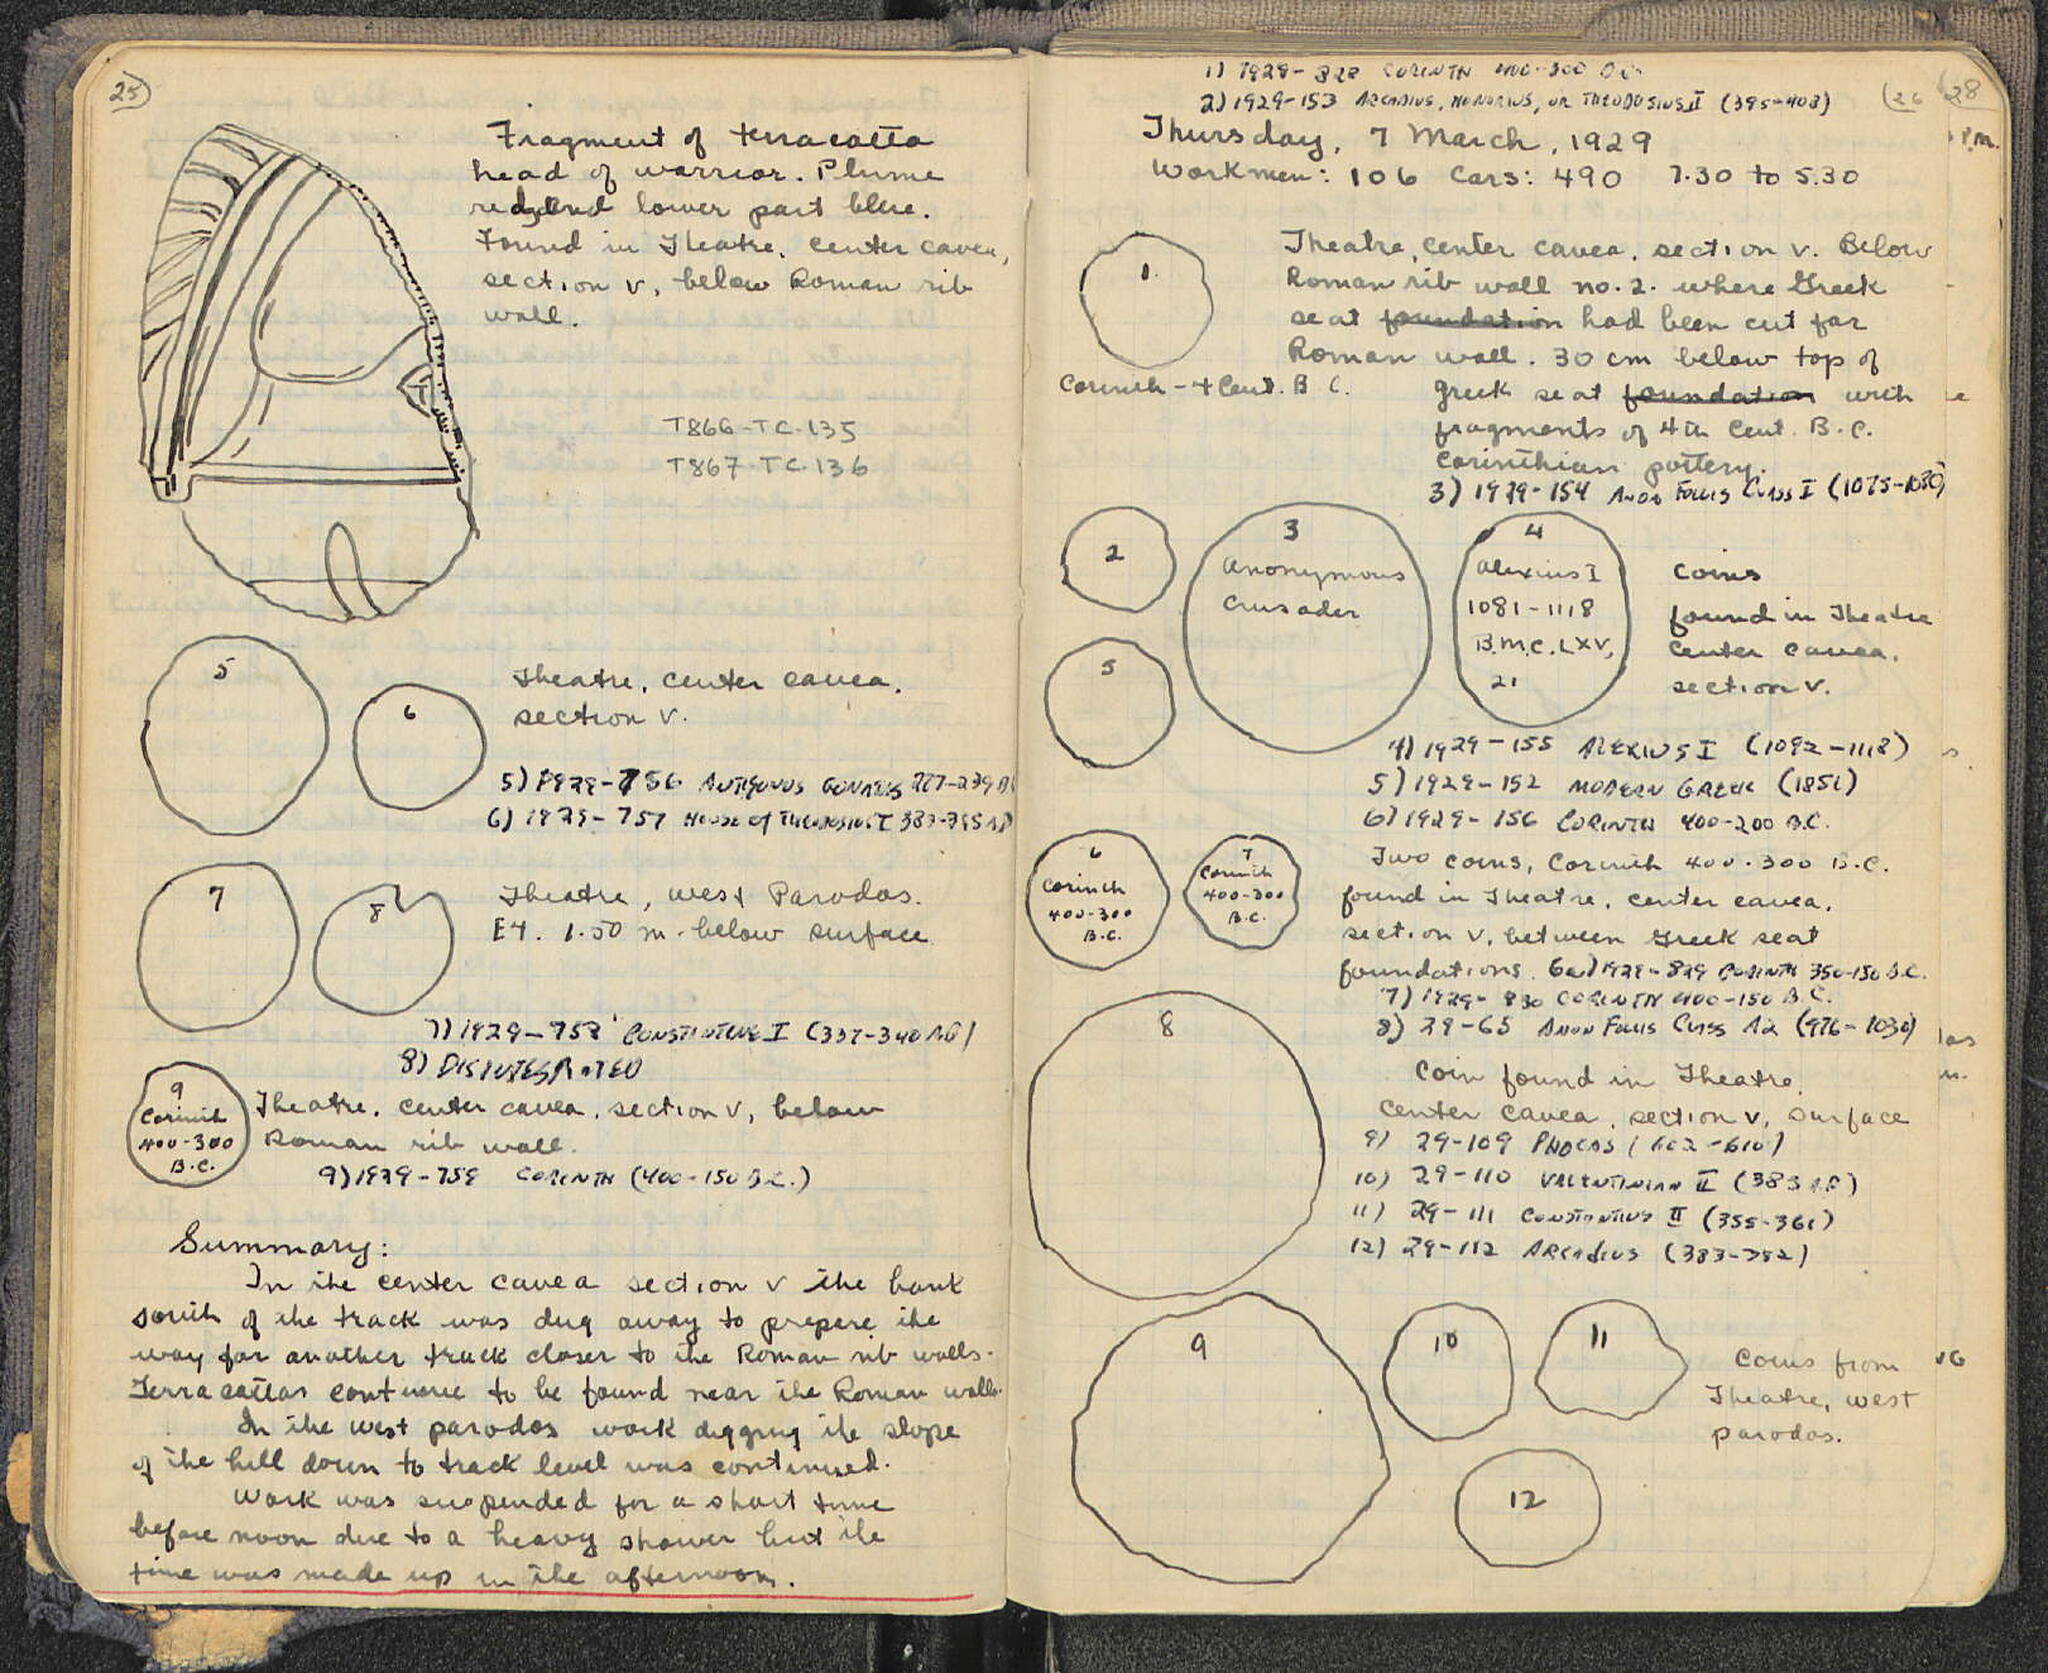 25
Fragment of terracotta
head of warrior. Plume
red and lower part blue.
Found in Theatre, center cavea,
section V, below Roman rib
wall.
T866-TC-135
T867-TC-136
5
6
Theatre, center cavea,
section V.
5) 1929-756 Antigonus Gonatas 277-239 B
6) 1929-757 House of Theodosius I 383-395 AD
7
8
Theatre, west Parodos.
E4. 1.50 m. below surface
7) 1929-758 Constantine I (337-340 AD)
8) DISINTEGRATED
9
Corinth
400-300
B.C.
Theatre, center cavea, section V, below
Roman rib wall.
9) 1929-759 CORINTH (400-150 B.C.)
Summary:
In the center cavea section V the bank
south of the track was dug away to prepare the
way for another track closer to the Roman rib walls.
Terracottas continue to be found near the Roman walls.
In the west parodos work digging the slope
of the hill down to track level was continued.
Work was suspended for a short time
before noon due to a heavy shower but the
time was made up in the afternoon.
1) 1929-828 CORINTH 400-300 B.C.
2) 1929-153 ARCADIUS, HONORIUS, OR THEODOSIUS II (395-408)
26
28
P.M.
Thursday, 7 March, 1929
Workmen: 106 Cars: 490 7.30 to 5.30
1.
Corinth - 4 Cent. B.C.
Theatre, center cavea, section V. Below
Roman rib wall no. 2. where Greek
seat foundation had been cut for
Roman wall. 30 cm below top of
Greek seat foundation with
fragments of 4th Cent. B.C.
Corinthian pottery.
3) 1929-154 Anon Follis Class I (1075-1080)
2
3
Anonymous
Crusader
4
Alexius I
1081-1118
B.M.C. LXV,
21
5
Coins
found in Theatre
center cavea,
section V.
4) 1929-155 ALEXIUS I (1092-1118)
5) 1929-152 MODERN GREEK (1851)
6) 1929-156 CORINTH 400-200 B.C.
6
Corinth
400-300
B.C.
7
Corinth
400-300
B.C.
Two coins, Corinth 400-300 B.C.
found in Theatre, center cavea,
section V, between Greek seat
foundations. 6a) 1929-829 CORINTH 350-150 B.C.
7) 1929-830 CORINTH 400-150 B.C.
8) 29-65 ANON FOLLIS CLASS A2 (976-1030)
8
Coin found in Theatre,
center cavea, section V, surface
9) 29-109 PHOCAS (602-610)
10) 29-110 VALENTINIAN II (383 AD)
11) 29-111 CONSTANTIUS II (355-361)
12) 29-112 ARCADIUS (383-392)
9
10
11
12
Coins from
Theatre, west
parodos.